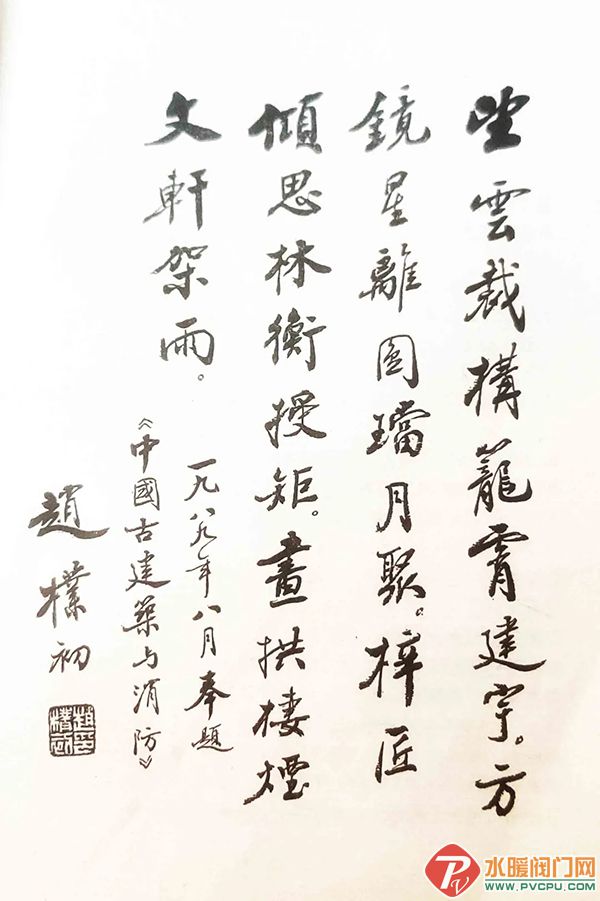 望雲裁構籠霄建宇。方
鏡星離圓璫月聚。梓匠
傾思林衡授矩。畫拱棲煙
文軒架雨。
一九八九年八月奉题
《中國古建築与消防》
趙樸初
水暖阀门网
WWW.PVCPU.COM